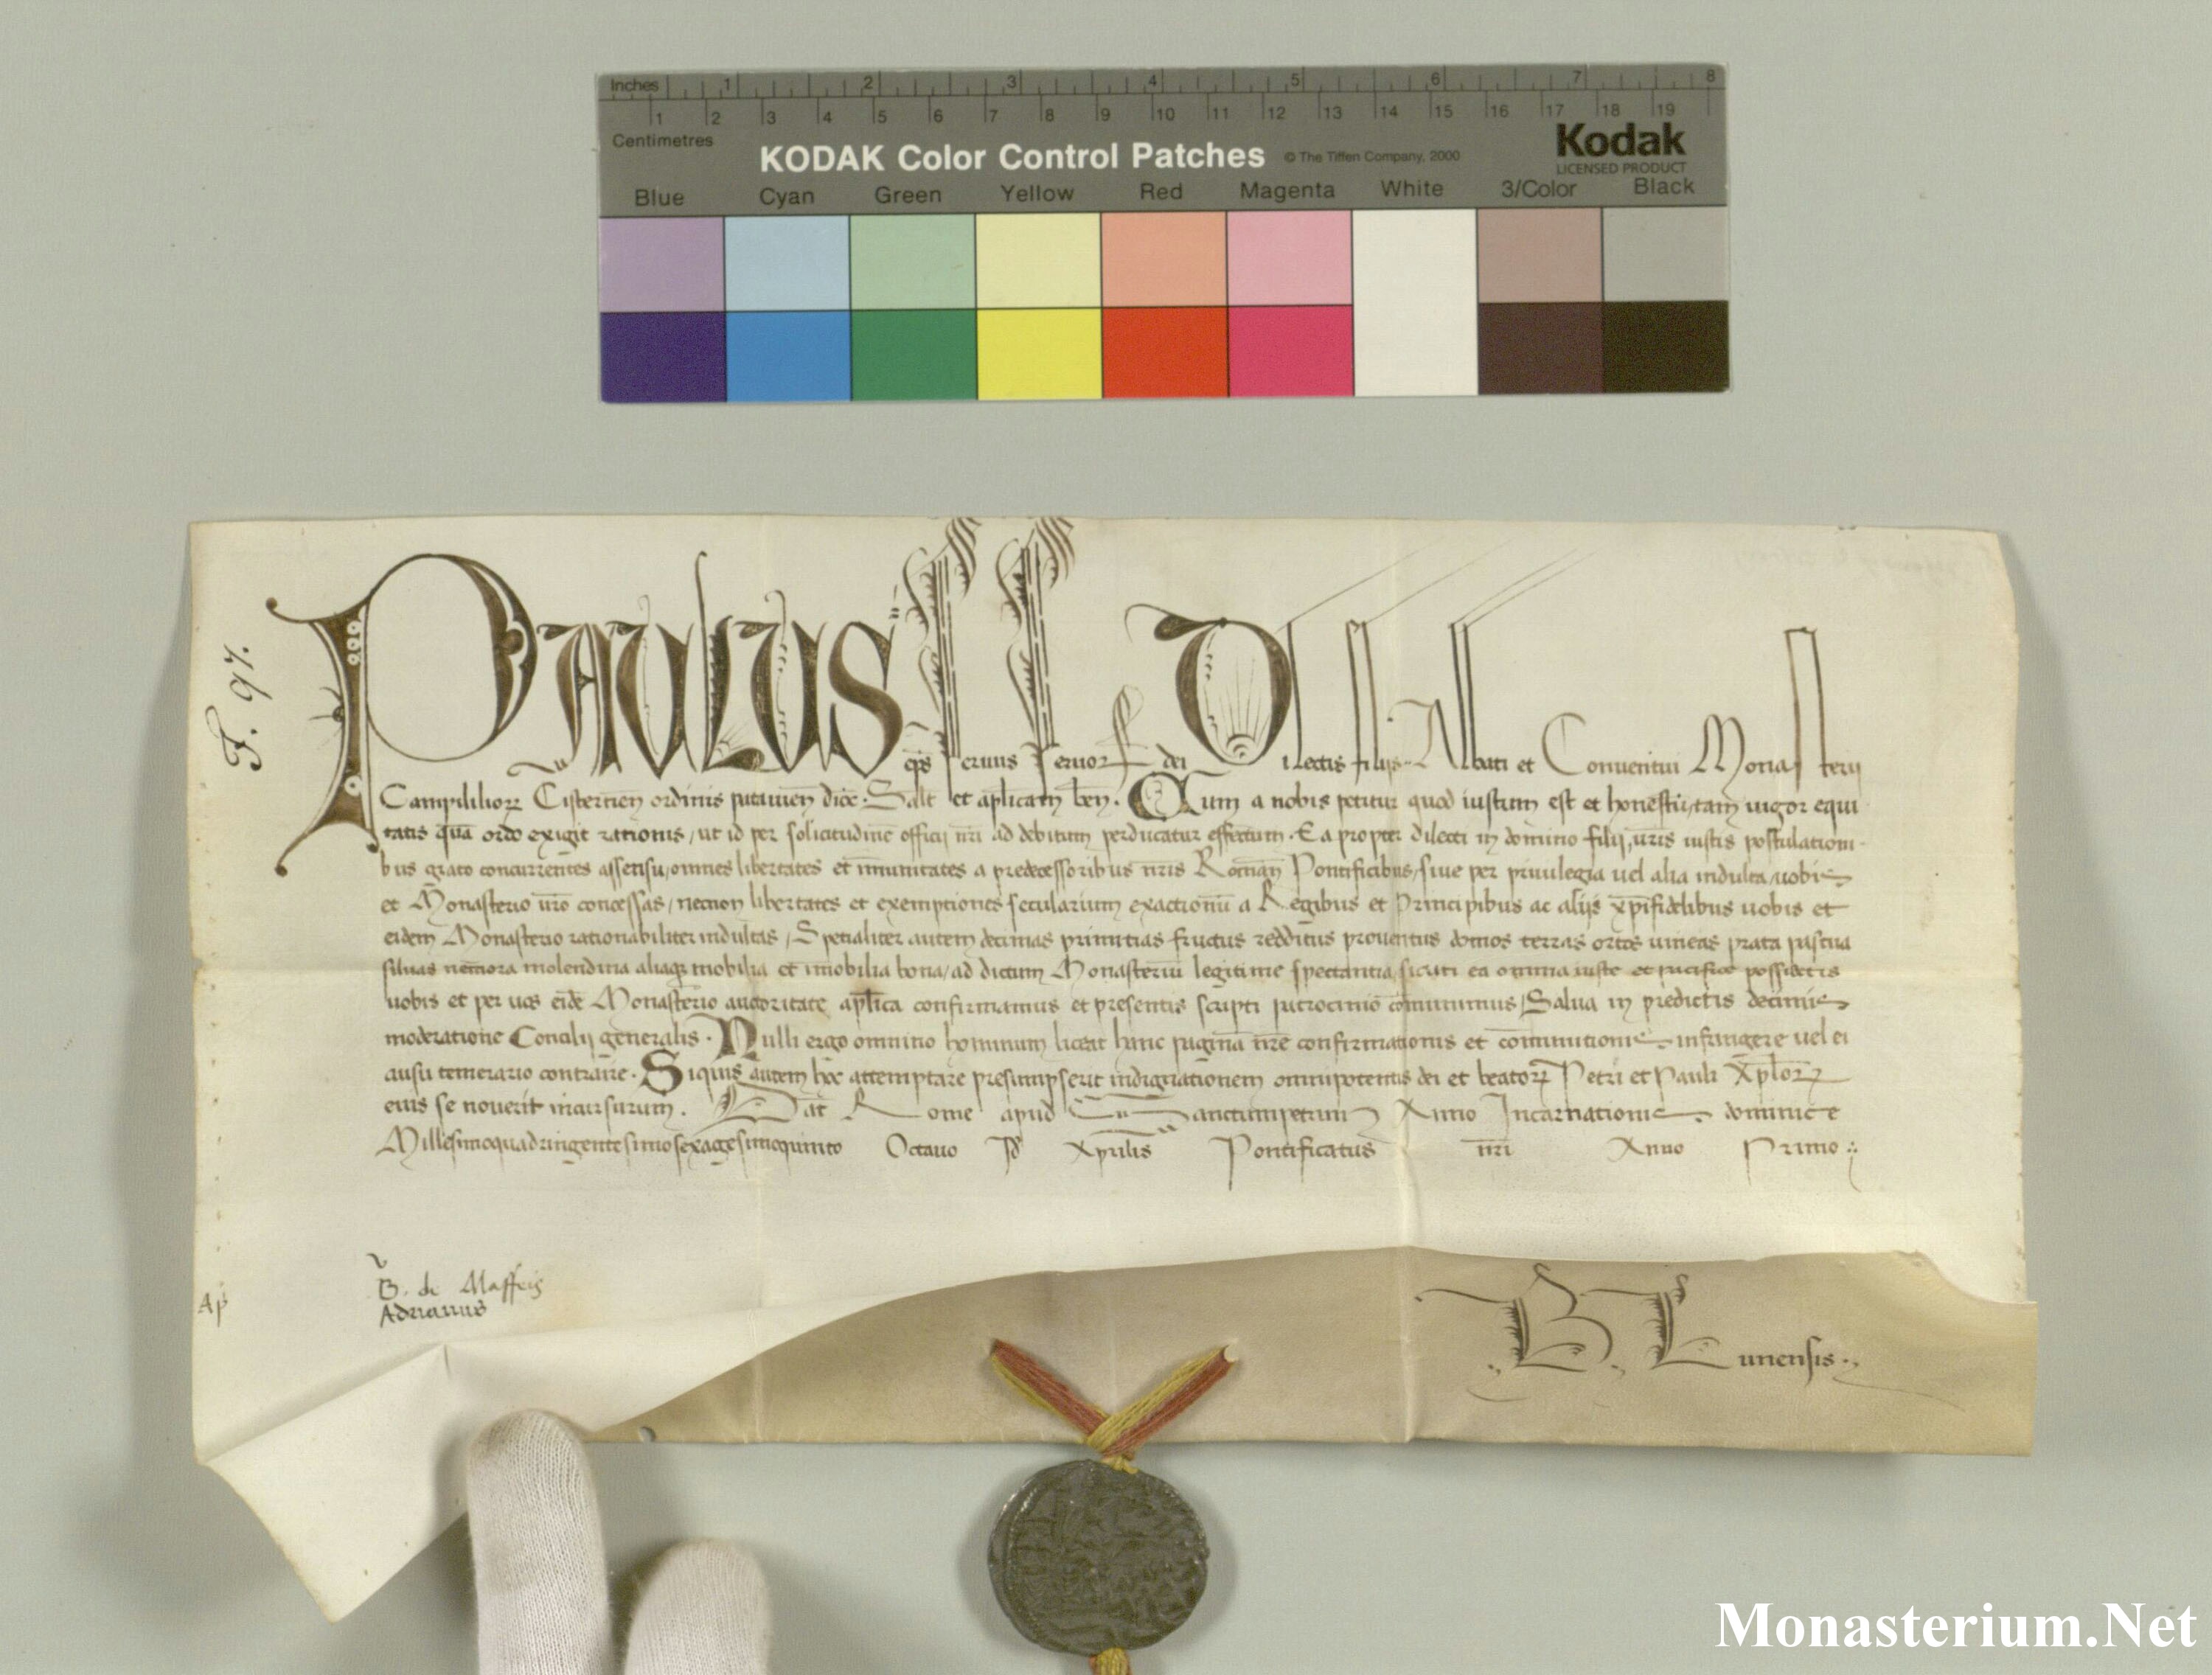 Inches 1 2 3 4 5 6 7 8
1 2 3 4 5 6 7 8 9 10 11 12 13 14 15 16 17 18 19
Centimetres
KODAK Color Control Patches © The Tiffen Company, 2000 Kodak
LICENSED PRODUCT
Blue Cyan Green Yellow Red Magenta White 3/Color Black
Paulus ep̄s seruus seruorꝝ dei Dilectis filijs Abbati et Conuentui Monasterij
Campililiorꝝ Cisterciēn ordinis patauien̄ dioc̄. Salt̄ et ap̄licam ben̄. Cum a nobis petitur quod iustum est et honestū, tam uigor equi
tatis quā ordo exigit rationis, ut id per solicitudinē officij nr̄i ad debitum perducatur effectum. Eapropter dilecti in domino filij, ur̄is iustis postulationi
bus grato concurrentes assensu, omnes libertates et īmunitates a predecessoribus nr̄is Roman̄ Pontificibus, siue per priuilegia uel alia indulta, uobis
et Monasterio ur̄o concessas, necnon libertates et exemptiones secularium exactionū a Regibus et Principibus ac alijs xp̄ifidelibus uobis et
eidem Monasterio rationabiliter indultas, Specialiter autem decimas primitias fructus redditus prouentus domos terras ortos uineas prata pascua
siluas nemora molendina aliaqꝫ mobilia et īmobilia bona, ad dictum Monasteriū legitime spectantia, sicuti ea omnia iuste et pacifice possidetis
uobis et per uos eidē Monasterio auctoritate ap̄lica confirmamus et presentis scripti patrocinio cōmunimus, Salua in predictis decimis
moderatione Concilij generalis. Nulli ergo omnino hominum liceat hanc paginā nr̄e confirmationis et cōmunitionis infringere uel ei
ausu temerario contraire. Siquis autem hoc attemptare presumpserit indignationem omnipotentis dei et beatorꝝ Petri et Pauli Apl̄orꝝ
eius se nouerit incursurum. Dat̄ Rome apud Sanctumpetrum Anno Incarnationis dominice
Millesimoquadringentesimosexagesimoquinto Octauo Id̄ Aprilis Pontificatus nr̄i Anno Primo
F. 97.
B. de Maffeis
Adrianus
Ap
B. Lunensis
Monasterium.Net